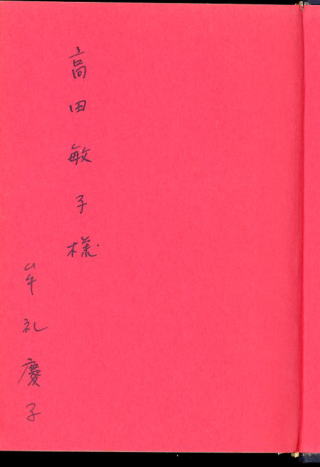 高田敏子様
牟礼慶子